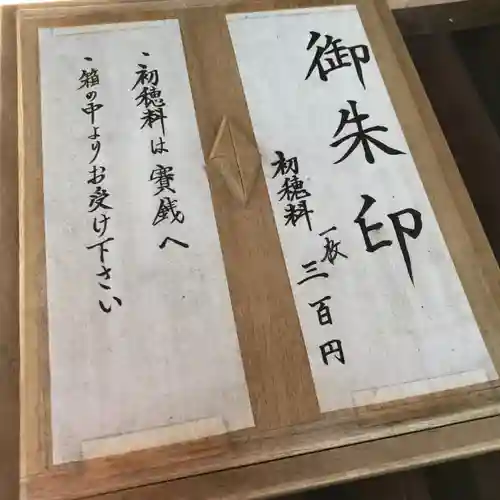 御朱印
初穂料 一枚 三百円
、初穂料は賽銭へ
、箱の中よりお受け下さい